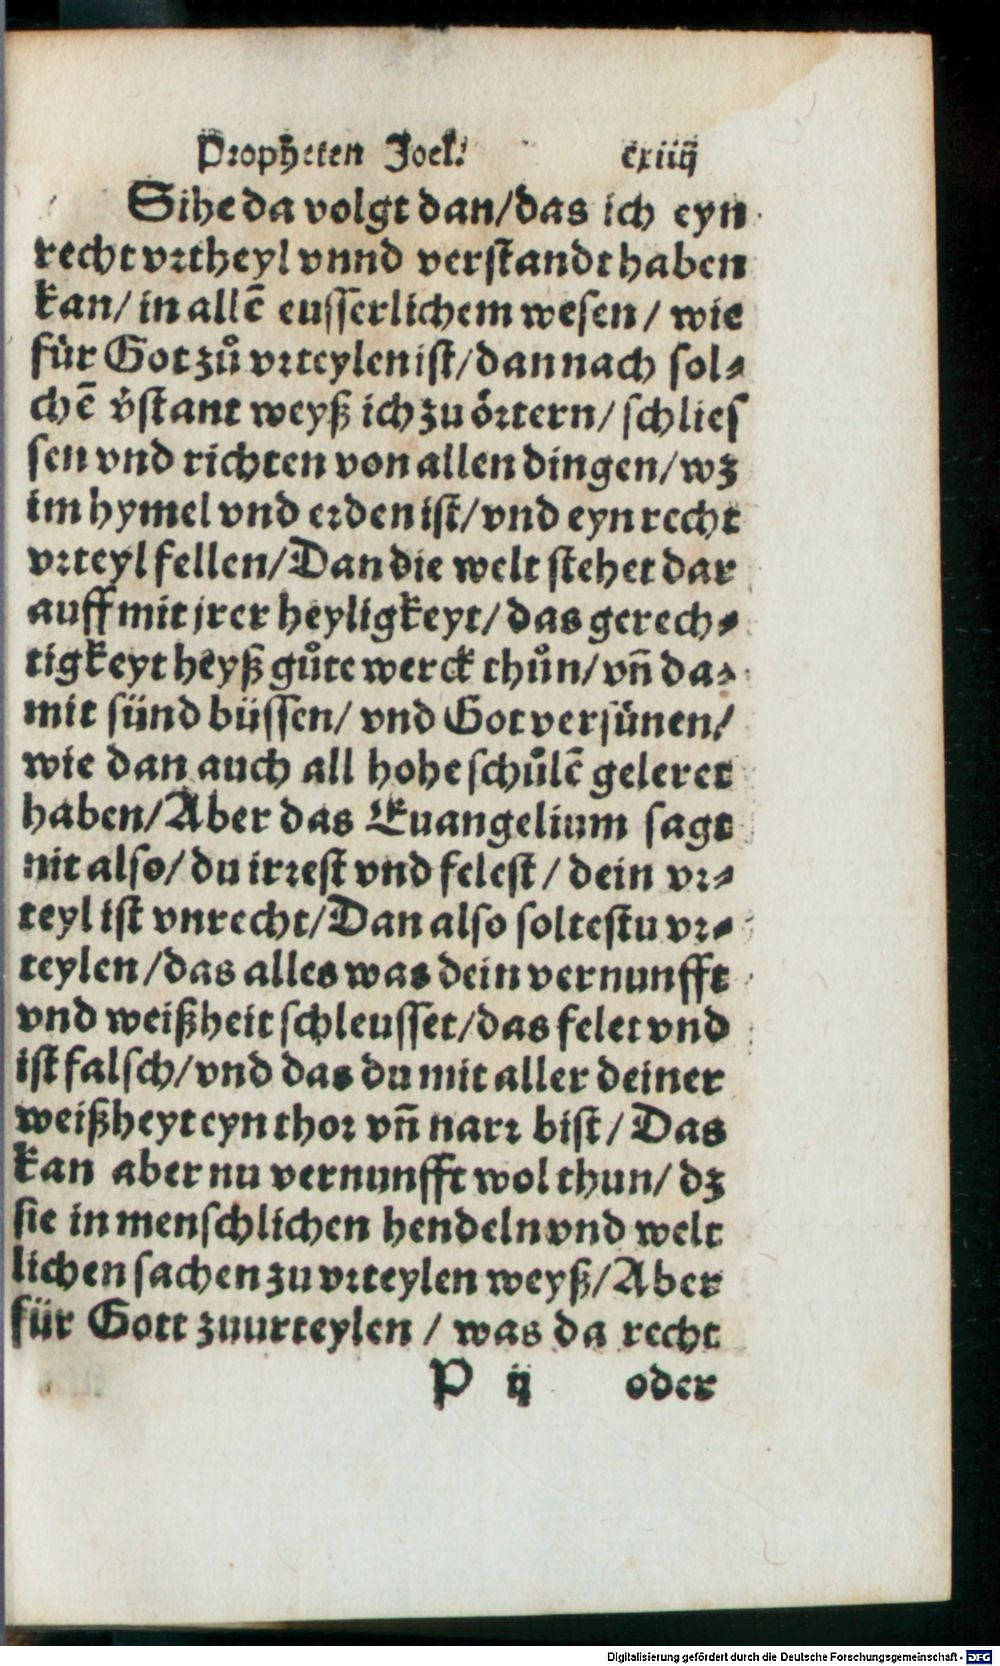 Propheten Joel. cxiiij
Sihe da volgt dan/das ich eyn
recht vrtheyl vnnd verstandt haben
kan/ in allē eusserlichem wesen/ wie
für Got zů vrteylen ist/dan nach sol⸗
chē v̓stant weyß ich zu örtern/ schlies
sen vnd richten von allen dingen/wz
im hymel vnd erden ist/vnd eyn recht
vrteyl fellen/Dan die welt stehet dar
auff mit jrer heyligkeyt/ das gerech⸗
tigkeyt heyß gůte werck thůn/ vn̄ da⸗
mit sünd büssen/ vnd Got versünen/
wie dan auch all hohe schůlē geleret
haben/Aber das Euangelium sagt
nit also/ du irrest vnd felest / dein vr⸗
teyl ist vnrecht/Dan also soltestu vr⸗
teylen/das alles was dein vernunfft
vnd weißheit schleusset/das felet vnd
ist falsch/vnd das du mit aller deiner
weißheyt eyn thor vn̄ narr bist/ Das
kan aber nu vernunfft wol thun/ dz
sie in menschlichen hendeln vnd welt
lichen sachen zu vrteylen weyß/Aber
für Gott zuurteylen / was da recht
P ij oder
Digitalisierung gefördert durch die Deutsche Forschungsgemeinschaft - DFG